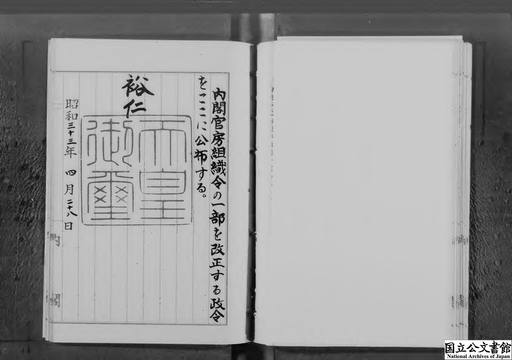 内閣官房組織令の一部を改正する政令
をここに公布する。
裕仁
天皇
御璽
昭和三十三年四月二十八日
国立公文書館
National Archives of Japan